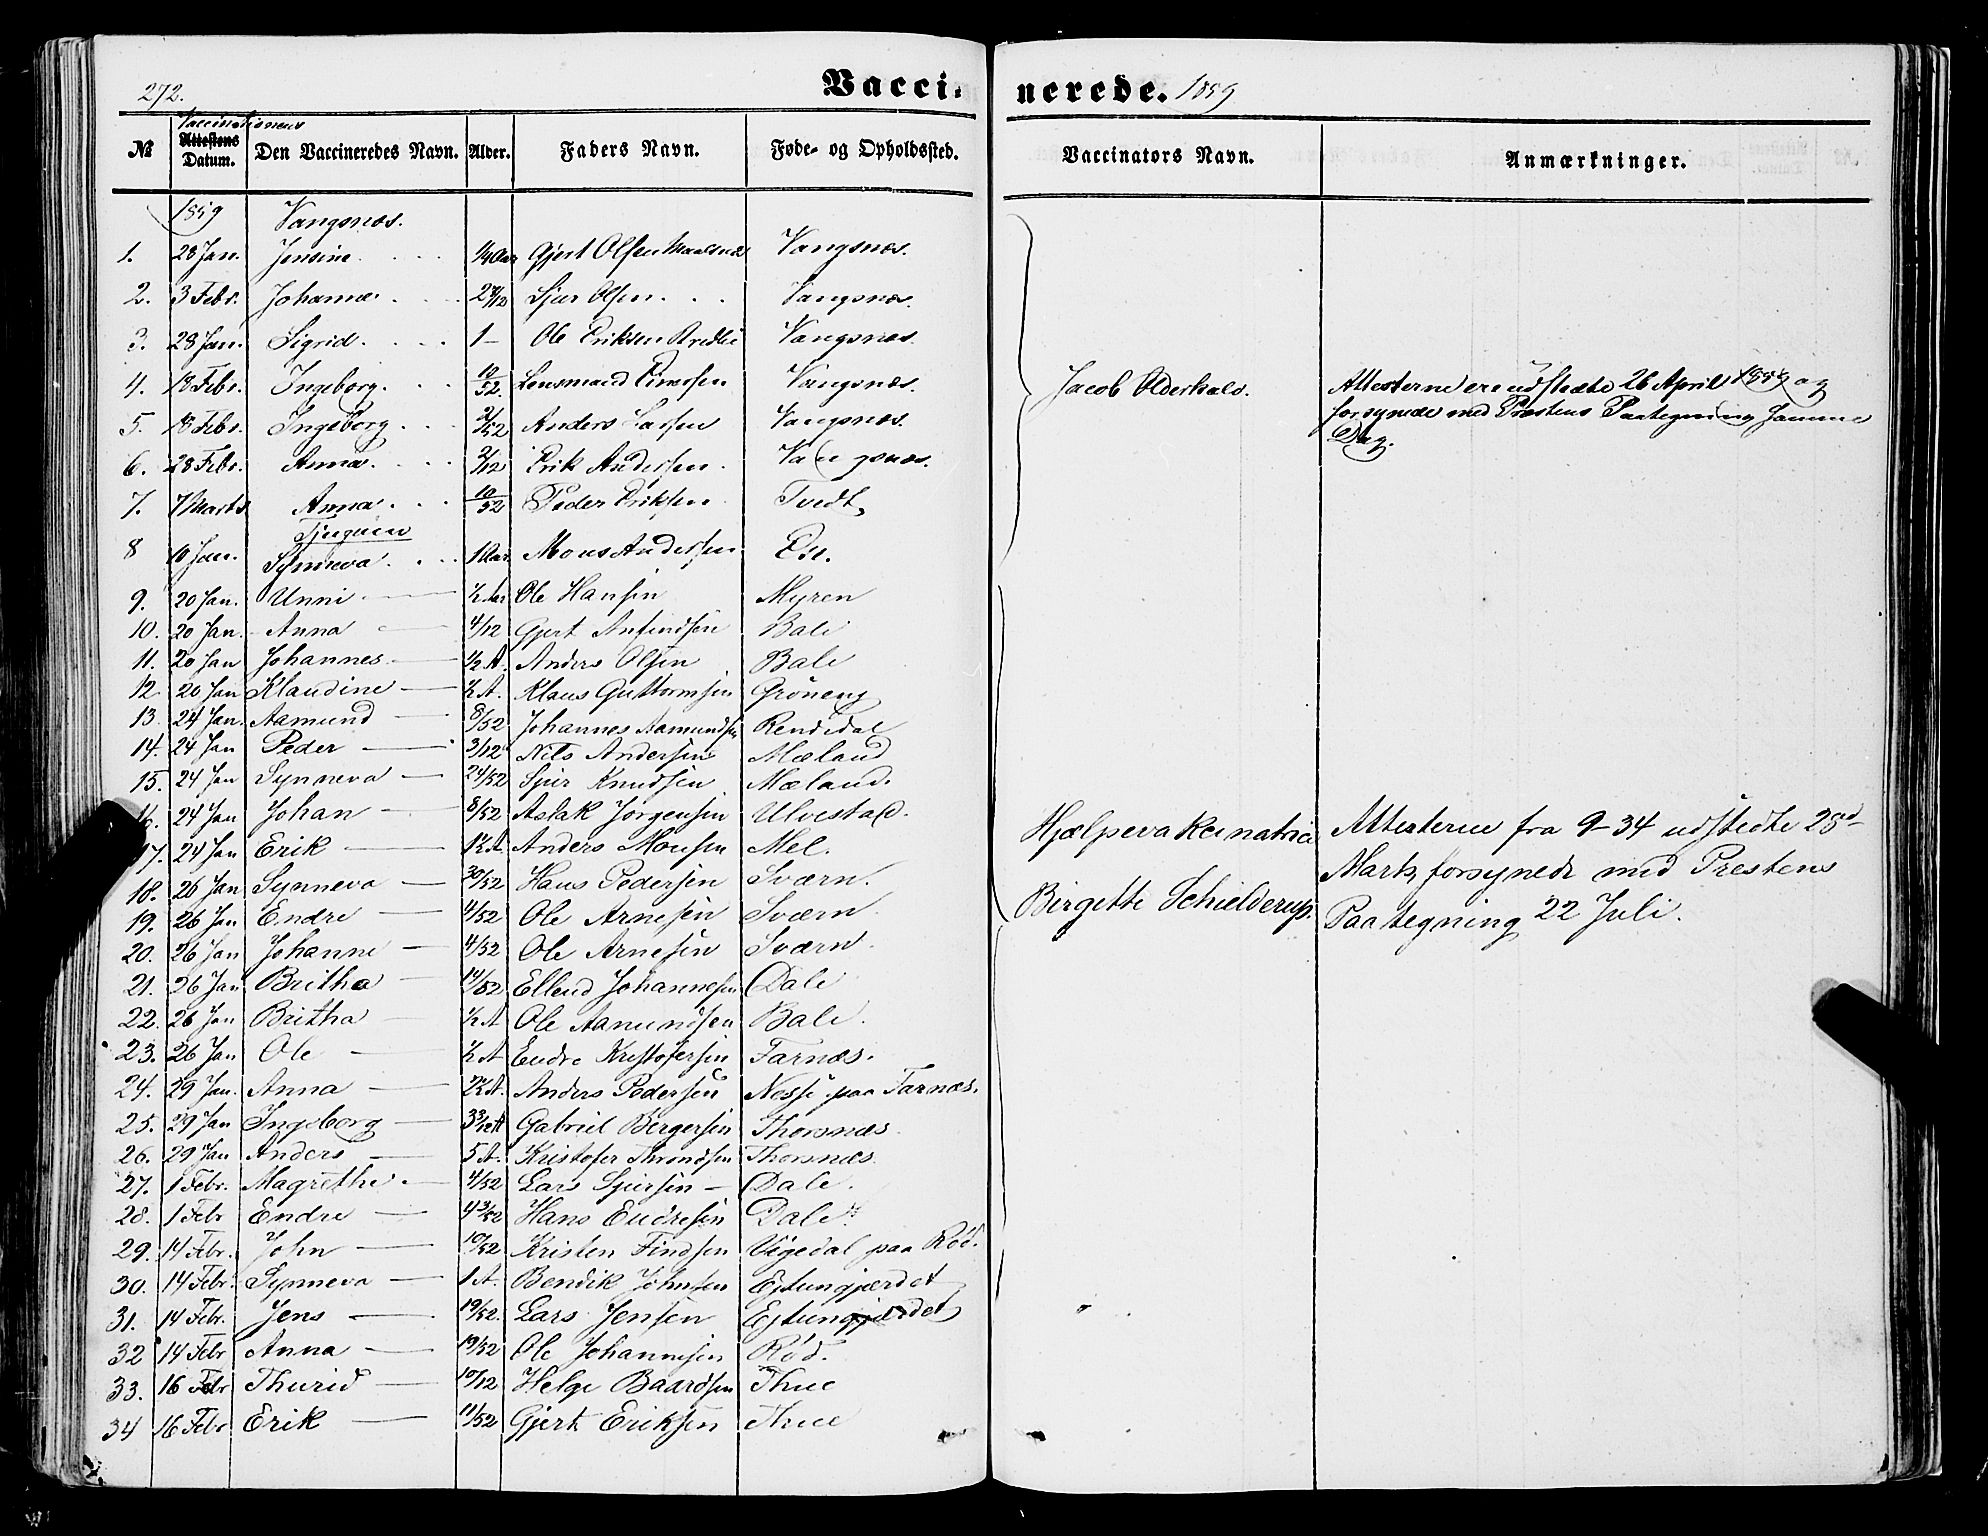 272.
Vaccinerede. 1859
№ Vaccinationens Attestens Datum. Den Vaccineredes Navn. Alder. Faders Navn. Føde- og Opholdssted. Vaccinators Navn. Anmærkninger.
1859 Vangsnæs.
1. 28 Jan. Jensine 1/4 Aar Gjert Olsen Vangsnæs.
2. 3 Febr. Johanna Sjur Olsen Vangsnæs.
3. 28 Jan. Sigrid 1 Ole Eriksen Vangsnæs.
4. 18 Febr. Ingeborg 10/52. Lensmand Vangsnæs.
5. 18 Febr. Ingeborg 2/52 Anders Larsen Vangsnæs.
6. 28 Febr. Anna 2/12 Erik Andersen Vangsnæs.
7. 7 Marts Anna 10/52 Peder Eriksen Tvedt
Tjugum
8 10 Jan. Synneva 1 Aar Mons Andersen Ese.
Jacob Olderhals. Attesterne ere udstædte 26 April 1859 og
forsynede med Prestens Paategning samme
Dag.
9. 20 Jan. Unni 1/2 Aar Ole Hansen Myren
10. 20 Jan. Anna 4/12 Gjert Anfindsen Bale
11. 20 Jan Johannes 1/2 A. Anders Olsen Bale
12 20 Jan Klaudine 1/2 A. Klaus Guttormsen Grøneng
13. 24 Jan. Aamund 8/52 Johannes Aamundsen Rendedal
14. 24 Jan Peder 3/12 Nils Andersen Mæland
15. 24 Jan Synneva 24/52 Sjur Knudsen Mæland.
16. 24 Jan Johan 8/52 Aslak Jørgensen Ulvestad.
17. 24 Jan Erik 1 1/2 A. Anders Monsen Mel.
18. 26 Jan Synneva 30/52 Hans Pedersen Sværn.
19. 26 Jan Endre 4/52 Ole Arnesen Sværn.
20. 26 Jan Johanne 4/52 Ole Arnesen Sværn.
21. 26 Jan Britha 14/52 Ellend Johannesen Dale
22. 26 Jan Britha 1/2 A Ole Aamundsen Bale.
23. 26 Jan Ole 1/2 A Endre Kristofersen Farnæs.
24. 29 Jan. Anna 2 1/2 A. Anders Pedersen Nesse paa Farnæs.
25. 29 Jan Ingeborg 3 3/12 A Gabriel Bergersen Thorsnæs
26. 29 Jan Anders 5 A. Kristofer Throndsen Thorsnæs.
27. 1 Febr. Magrethe 4/52 Lars Sjursen Dale.
28. 1 Febr Endre 4 3/52 Hans Endresen Dale.
29. 14 Febr. John 10/52 Kristen Findsen Vigedal paa Rød.
30. 14 Febr. Synneva 1 A. Bendik Johnsen Ejtungjærdet
31. 14 Febr. Jens 19/52. Lars Jensen Ejtungjærdet
32 14 Febr Anna 19/52 Ole Johannesen Rød.
33. 16 Febr Thurid 10/12 Helge Baardsen Thue
34 16 Febr Erik 11/52 Gjert Eriksen Thue
Hjælpevakcinatrice Attesterne fra 9-34 udstedte 25d
Marts, forsynede med Prestens
Birgette Schielderup. Paategning 22 Juli.